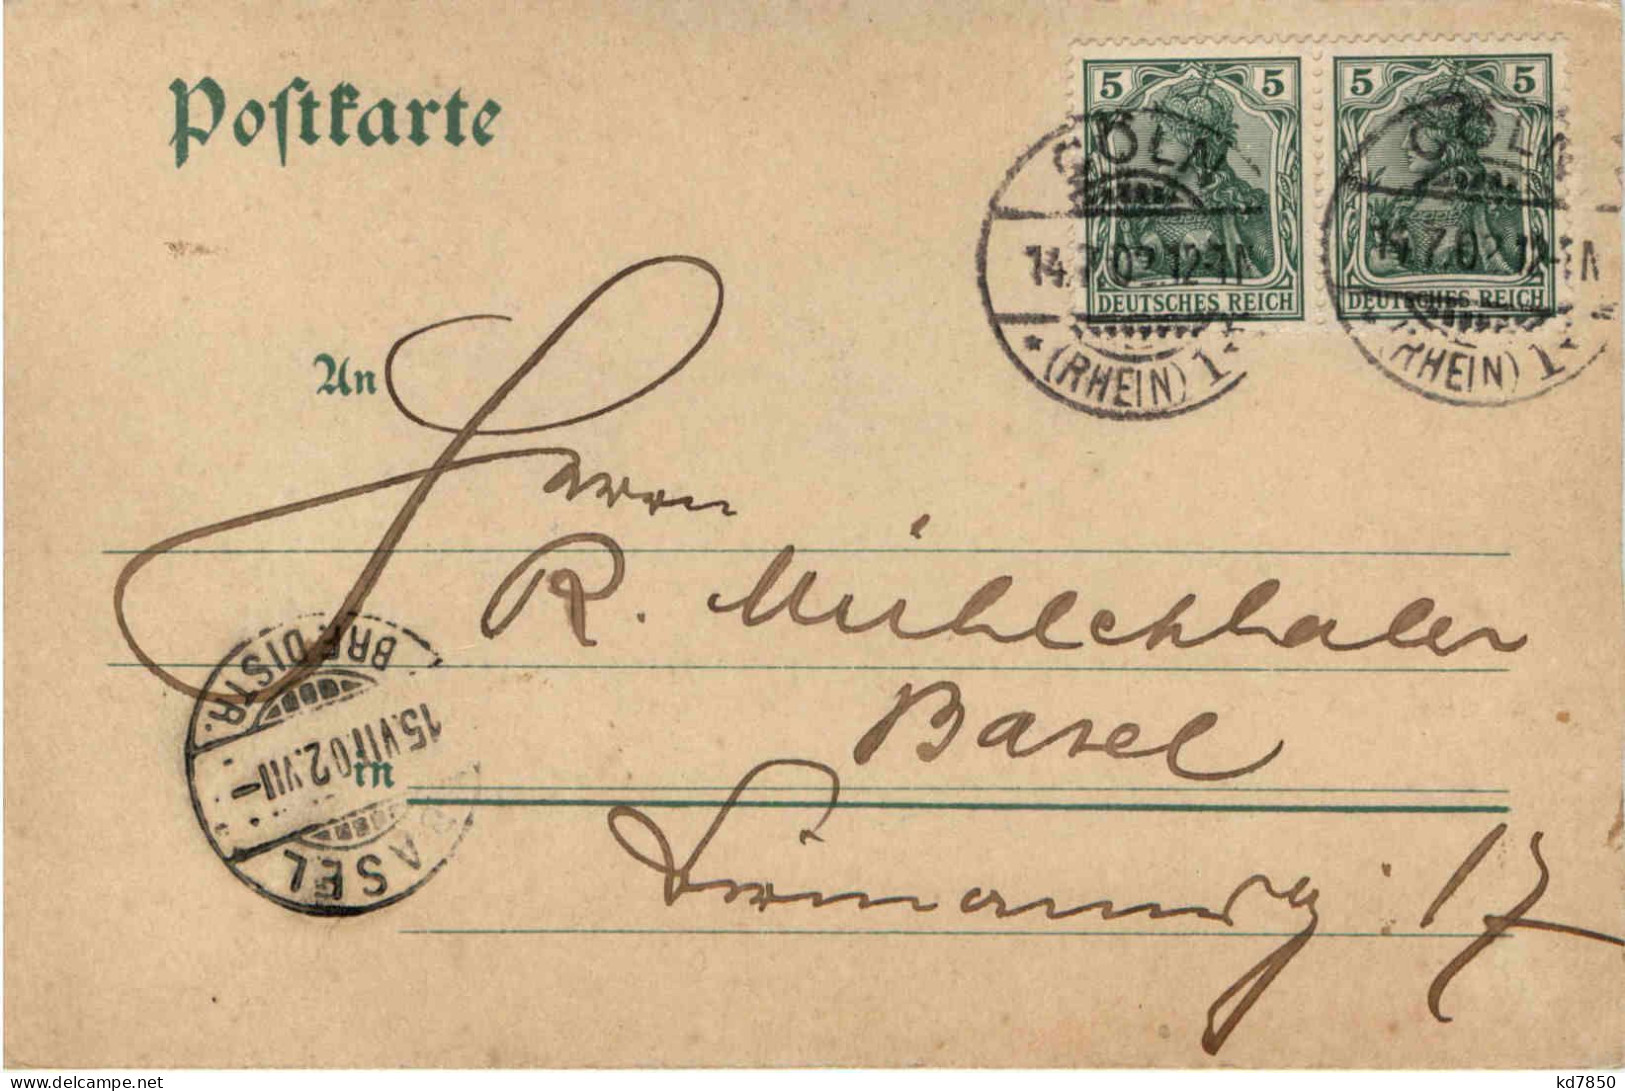 Postkarte
5 5
5 5
DEUTSCHES REICH
DEUTSCHES REICH
CÖLN
14.7.02.12-1N
* (RHEIN) 1
CÖLN
14.7.02.12-1N
* (RHEIN) 1
An
Herrn
R. Mühlethaler
Basel
in
17
BASEL
15.VII.02.VII-
BRF. DISTR.
www.delcampe.net
kd7850